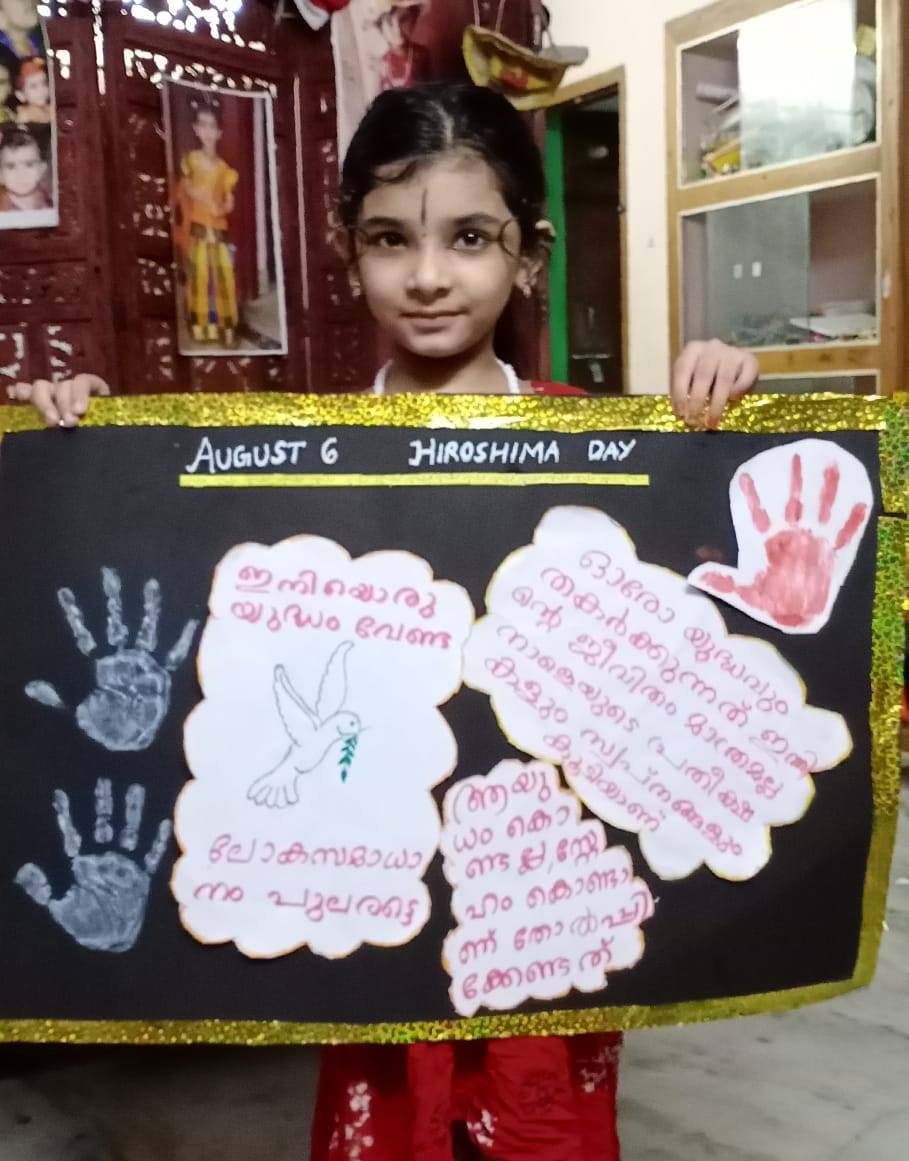 AUGUST 6 HIROSHIMA DAY
ഇനിയൊരു
യുദ്ധം വേണ്ട
ലോകസമാധാ
നം പുലരട്ടെ
ഓരോ യുദ്ധവും
തകർക്കുന്നത് ഇന്നി
ന്റെ ജീവിതം മാത്രമല്ല
നാളെയുടെ പ്രതീക്ഷ
കളും സ്വപ്നങ്ങളും
കൂടിയാണ്
ആയു
ധം കൊ
ണ്ടല്ല, സ്നേ
ഹം കൊണ്ടാ
ണ് തോൽപ്പി
ക്കേണ്ടത്